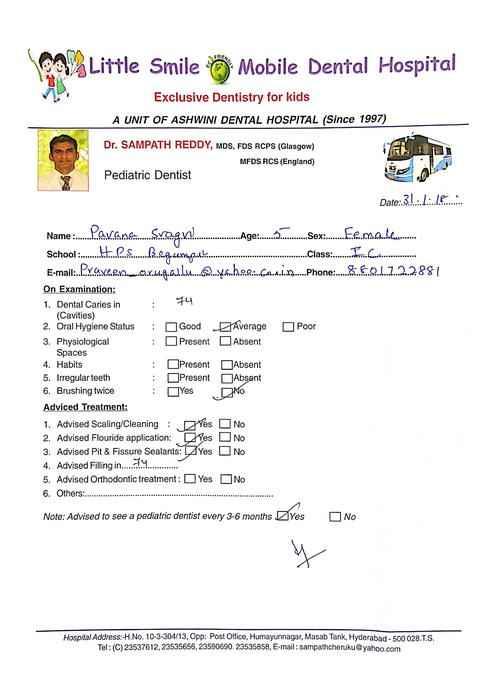 Little Smile Mobile Dental Hospital
Exclusive Dentistry for kids
A UNIT OF ASHWINI DENTAL HOSPITAL (Since 1997)
Dr. SAMPATH REDDY, MDS, FDS RCPS (Glasgow)
MFDS RCS (England)
Pediatric Dentist
Date: 31.1.18
Name: Pavana Sragvi Age: 5 Sex: Female
School: HPS Begumpet Class: I C
E-mail: Praveen_orugallu@yahoo.co.in Phone: 8801722881
On Examination:
1. Dental Caries in : 74
(Cavities)
2. Oral Hygiene Status : Good Average Poor
3. Physiological : Present Absent
Spaces
4. Habits : Present Absent
5. Irregular teeth : Present Absent
6. Brushing twice : Yes No
Adviced Treatment:
1. Advised Scaling/Cleaning : Yes No
2. Advised Flouride application: Yes No
3. Advised Pit & Fissure Sealants: Yes No
4. Advised Filling in 74
5. Advised Orthodontic treatment : Yes No
6. Others:
Note: Advised to see a pediatric dentist every 3-6 months Yes No
Hospital Address:-H.No. 10-3-304/13, Opp: Post Office, Humayunnagar, Masab Tank, Hyderabad - 500 028.T.S.
Tel : (C) 23537612, 23535656, 23590690. 23535858, E-mail : sampathcheruku@yahoo.com